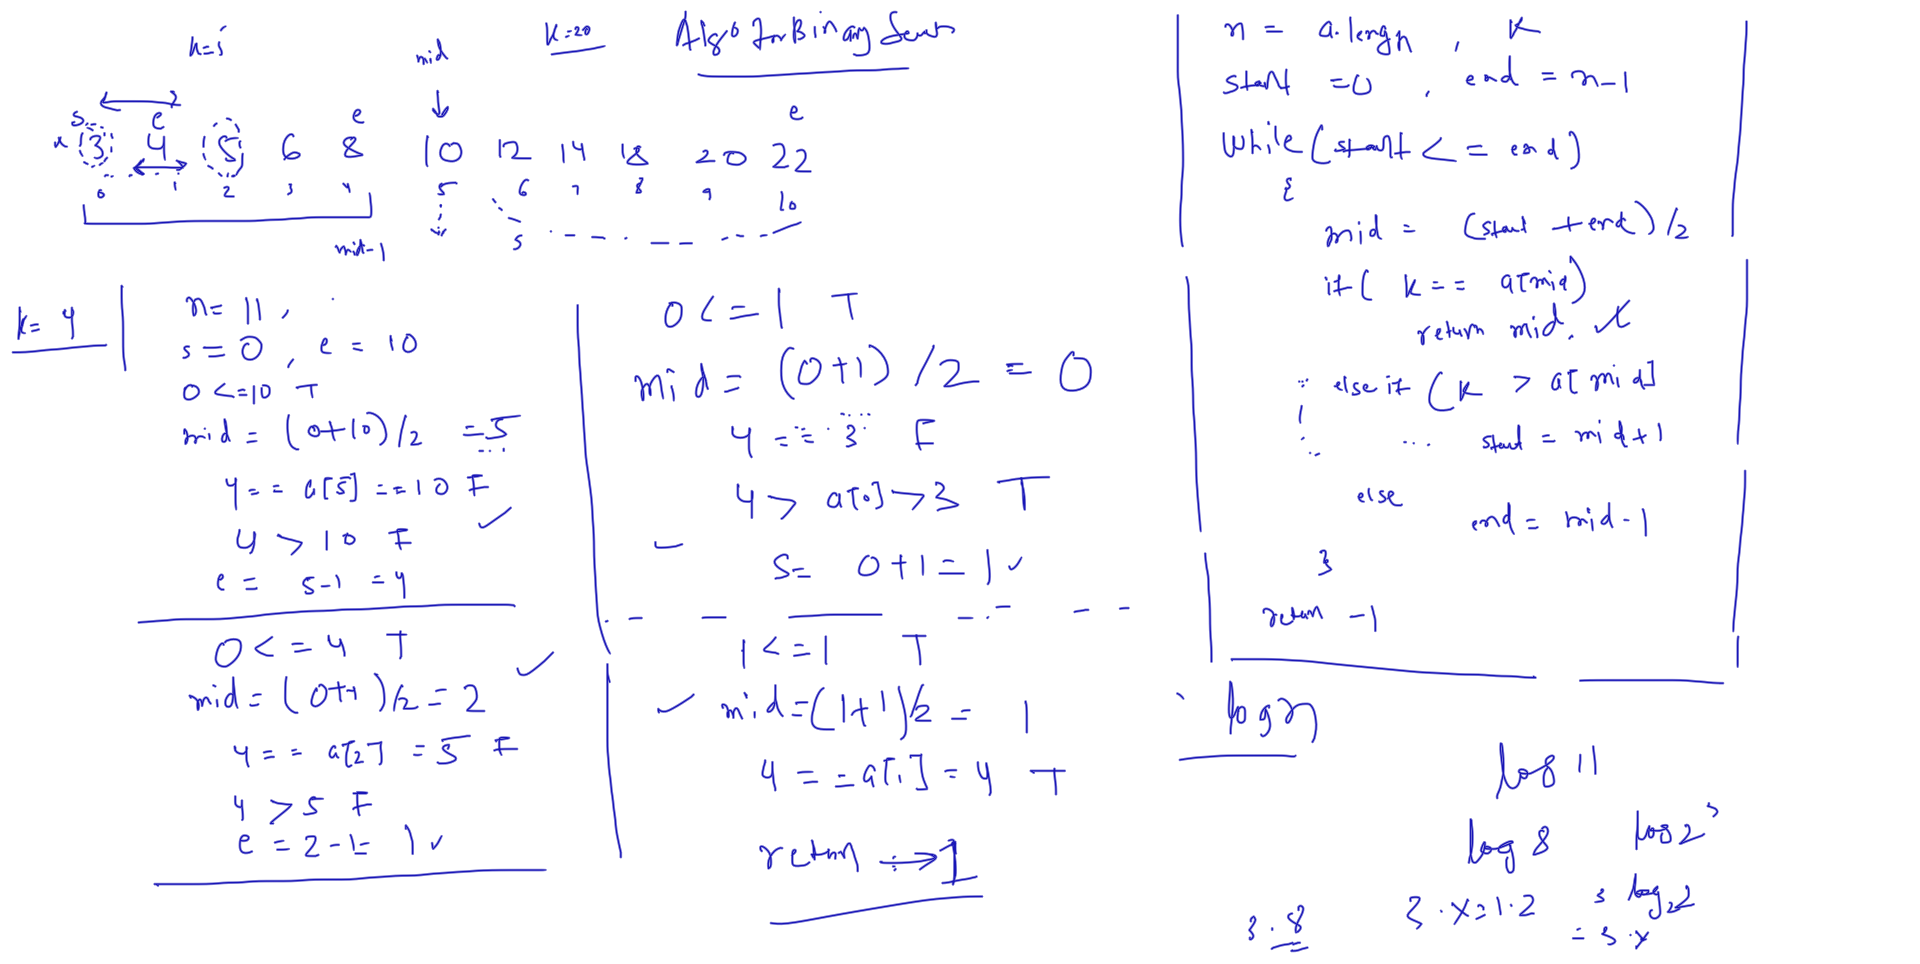 k=5
mid
k=20
Algo for Binary Search
s
e
e
e
3 4 5 6 8 10 12 14 18 20 22
0 1 2 3 4 5 6 7 8 9 10
mid-1
s
k= 4
n= 11,
s=0, e = 10
0<=10 T
mid = (0+10)/2 =5
4== a[5] ==10 F
4 > 10 F
e = 5-1 =4
0<=4 T
mid= (0+4)/2=2
4== a[2] =5 F
4 >5 F
e = 2-1= 1
0<=1 T
mid= (0+1)/2 = 0
4 == 3 F
4> a[0]>3 T
s= 0+1=1
1<=1 T
mid=(1+1)/2= 1
4 ==a[1]=4 T
return → 1
n = a.lengh, k
start =0, end = n-1
while(start<=end)
{
mid = (start +end)/2
if( k== a[mid)
return mid.
else if (k > a[mid]
start = mid+1
else
end= mid-1
}
return -1
log n
log 11
log 8 log 2³
3.8 3.x=1.2 3 log₂2
= 3.x